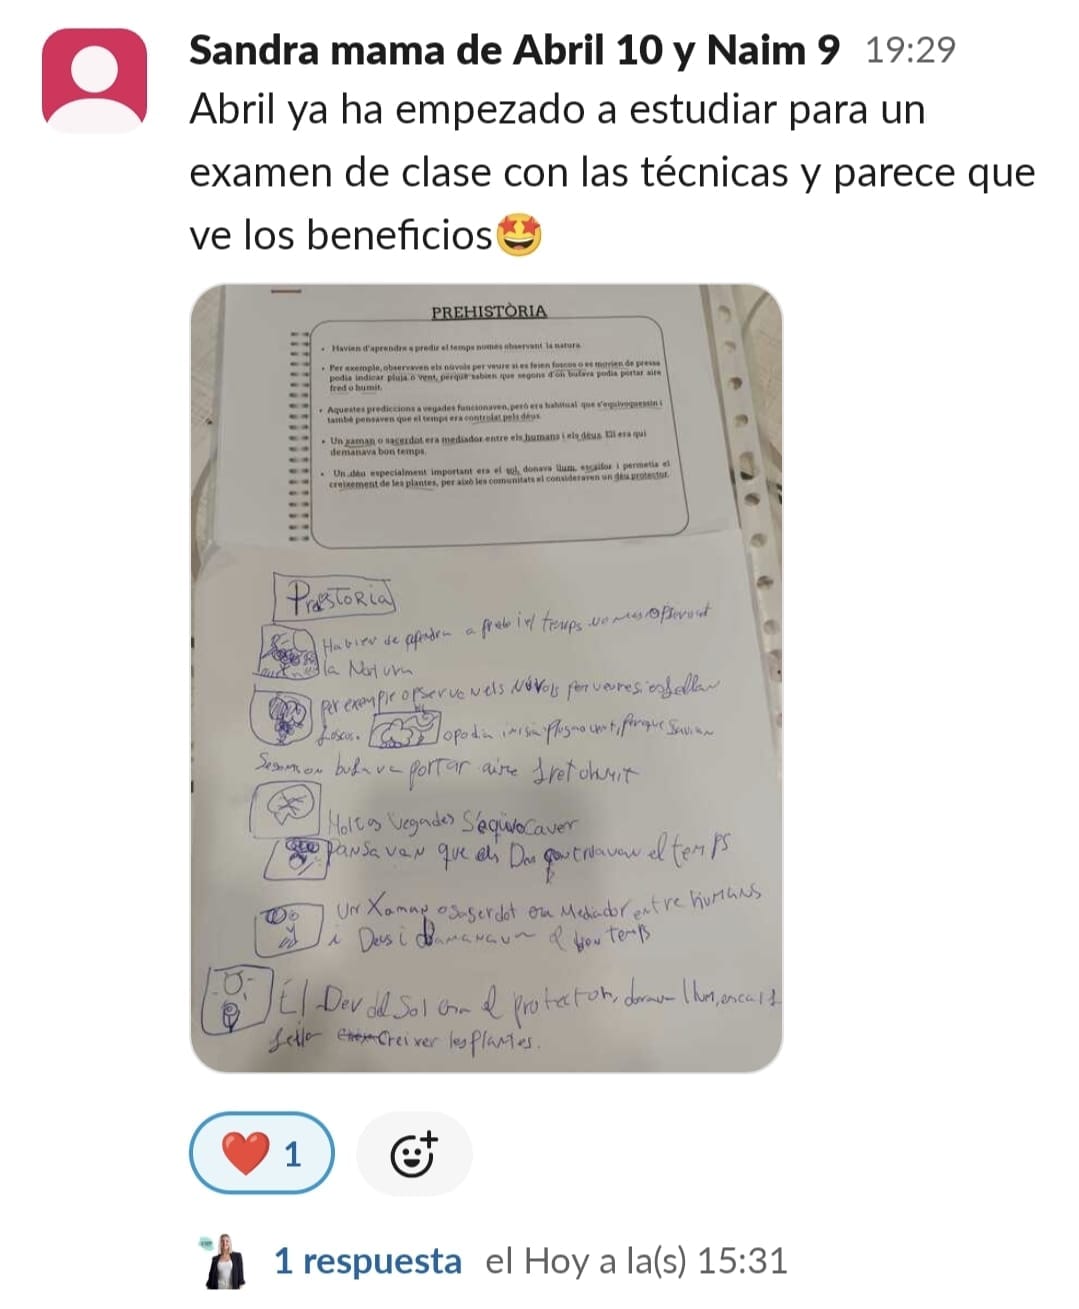 Sandra mama de Abril 10 y Naim 9 19:29
Abril ya ha empezado a estudiar para un
examen de clase con las técnicas y parece que
ve los beneficios🤩
PREHISTÒRIA
• Havien d'aprendre a predir el temps només observant la natura.
• Per exemple, observaven els núvols per veure si es feien foscos o es movien de pressa
podia indicar pluja o vent, perquè sabien que segons d'on bufava podia portar aire
fred o humit.
• Aquestes prediccions a vegades funcionaven, però era habitual que s'equivoquessin i
també pensaven que el temps era controlat pels déus.
• Un xaman o sacerdot era mediador entre els humans i els déus. Ell era qui
demanava bon temps.
• Un déu especialment important era el sol, donava llum, escalfor i permetia el
creixement de les plantes, per això les comunitats el consideraven un déu protector.
PrestoRia
Habien de a temps
la Natura
per exemple observaven els NúVols per
foscos. o podia
bufava portar aire fret o humit
Moltes Vegades S'equivocaven
PANSAVAN que els controlavan el temps
Un Xaman o Saserdot era Mediador entre humans
i Deus i bon temps
El Deu del Sol era el protector, donava llum,
Creixer les Plantes.
❤️ 1
1 respuesta el Hoy a la(s) 15:31